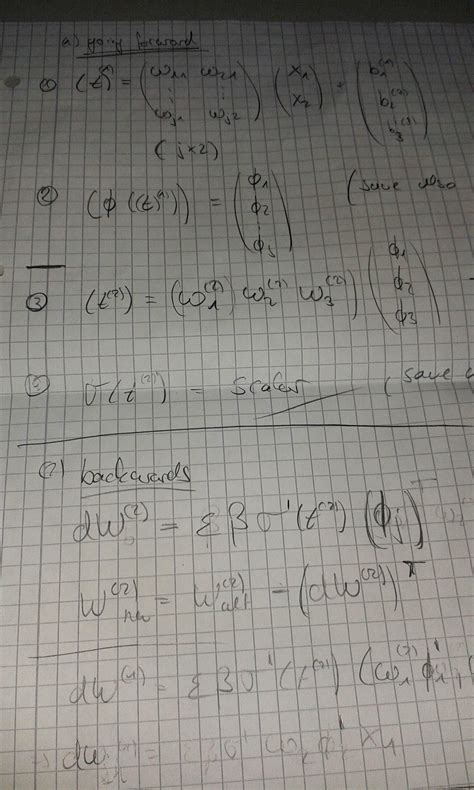 a) going forward
① (t)⁽¹⁾ = (ω₁₁ ω₂₁ ⋮ ⋮ ωⱼ₁ ωⱼ₂) (x₁ x₂) - (b₁⁽¹⁾ b₂⁽¹⁾ b₃⁽¹⁾)
(j×2)
② (ϕ((t)⁽¹⁾)) = (ϕ₁ ϕ₂ ⋮ ϕ₃) (save also
③ (t⁽²⁾) = (ω₁⁽²⁾ ω₂⁽²⁾ ω₃⁽²⁾) (ϕ₁ ϕ₂ ϕ₃)
σ(t⁽²⁾) = scalar (save
(2) backwards
dW⁽²⁾ = εβσ'(t⁽²⁾) (ϕⱼ)ᵀ
W⁽²⁾ = W⁽²⁾alt - (dW⁽²⁾)ᵀ
dW⁽¹⁾ = εβσ'(t⁽²⁾) (ω₁⁽²⁾ϕ'₁